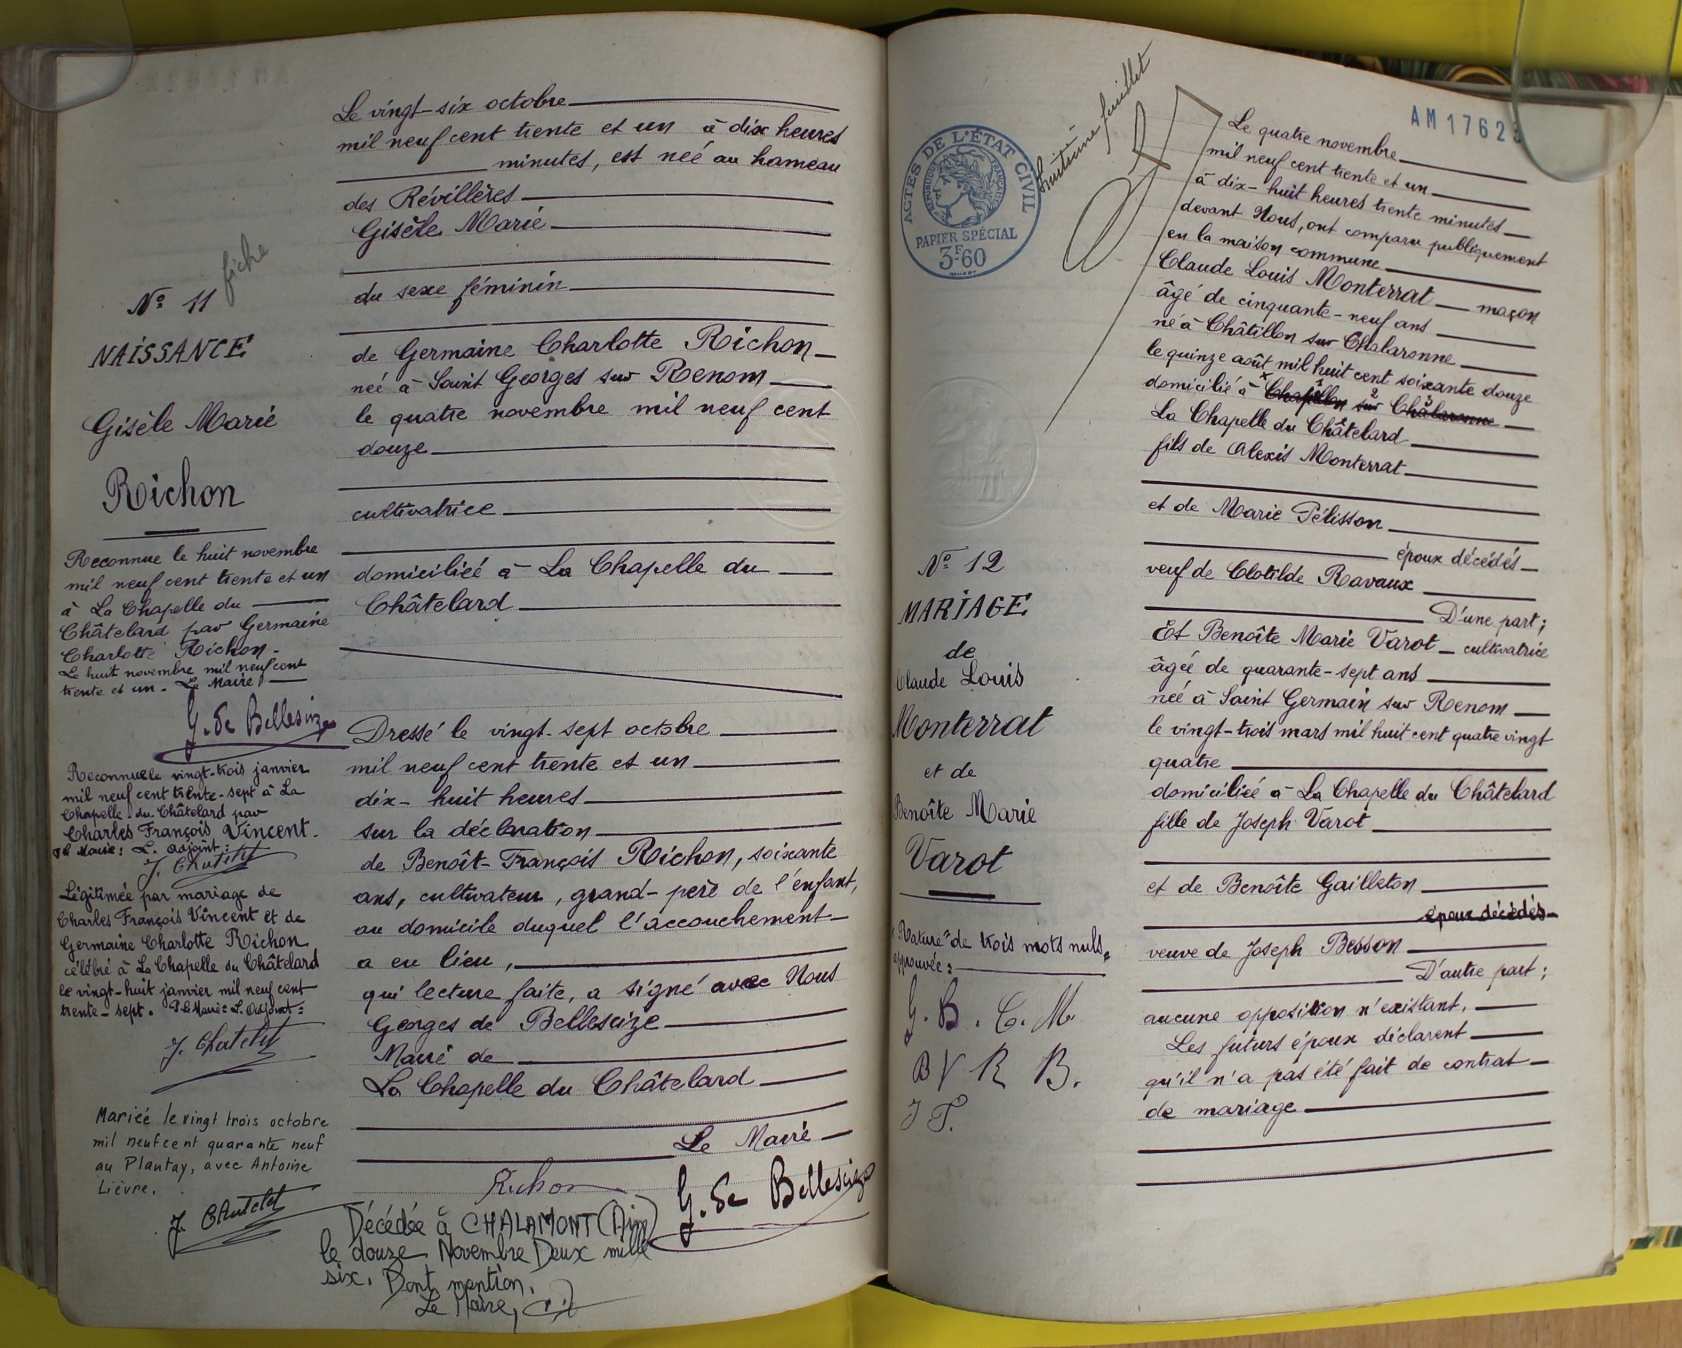 fiche
Nº 11
NAISSANCE
Gisèle Marie
Richon
Reconnue le huit novembre
mil neuf cent trente et un
à La Chapelle du
Châtelard par Germaine
Charlotte Richon.
Le huit novembre mil neuf cent
trente et un. Le Maire,
G. de Bellescize
Reconnue le vingt-trois janvier
mil neuf cent trente-sept à La
Chapelle du Châtelard par
Charles François Vincent.
Pr le Maire: L. Adjoint:
J. Chatelet
Légitimée par mariage de
Charles François Vincent et de
Germaine Charlotte Richon
célébré à La Chapelle du Châtelard
le vingt-huit janvier mil neuf cent
trente-sept. P. le Maire: L. Adjoint:
J. Chatelet
Mariée le vingt trois octobre
mil neuf cent quarante neuf
au Plantay, avec Antoine
Lièvre.
J. Chatelet
Le vingt-six octobre
mil neuf cent trente et un à dix heures
minutes, est née au hameau
des Révillères
Gisèle Marie
du sexe féminin
de Germaine Charlotte Richon
née à Saint Georges sur Renom
le quatre novembre mil neuf cent
douze
cultivatrice
domiciliée à La Chapelle du
Châtelard
Dressé le vingt-sept octobre
mil neuf cent trente et un
dix-huit heures
sur la déclaration
de Benoît-François Richon, soixante
ans, cultivateur, grand-père de l'enfant,
au domicile duquel l'accouchement
a eu lieu,
qui lecture faite, a signé avec Nous
Georges de Bellescize
Maire de
La Chapelle du Châtelard
Le Maire
Richon
G. de Bellescize
Décédée à CHALAMONT (Ain)
le douze Novembre Deux mille
six. Dont mention.
Le Maire,
ACTES DE L'ÉTAT CIVIL
RÉPUBLIQUE FRANÇAISE
PAPIER SPÉCIAL
3F60
huitième feuillet
AM 1762
Nº 12
MARIAGE
de
Claude Louis
Monterrat
et de
Benoîte Marie
Varot
"Rature" de trois mots nuls,
approuvée:
G. B. C. M.
B V R B.
J T.
Le quatre novembre
mil neuf cent trente et un
à dix-huit heures trente minutes
devant Nous, ont comparu publiquement
en la maison commune
Claude Louis Monterrat maçon
âgé de cinquante-neuf ans
né à Châtillon sur Chalaronne
le quinze août mil huit cent soixante douze
domicilié à Chapellon sur Chalaronne
La Chapelle du Châtelard
fils de Alexis Monterrat
et de Marie Pélisson
époux décédés
veuf de Clotilde Ravaux
D'une part;
Et Benoîte Marie Varot cultivatrice
âgée de quarante-sept ans
née à Saint Germain sur Renom
le vingt-trois mars mil huit cent quatre vingt
quatre
domiciliée à La Chapelle du Châtelard
fille de Joseph Varot
et de Benoîte Gailleton
époux décédés
veuve de Joseph Besson
D'autre part;
aucune opposition n'existant.
Les futurs époux déclarent
qu'il n'a pas été fait de contrat
de mariage